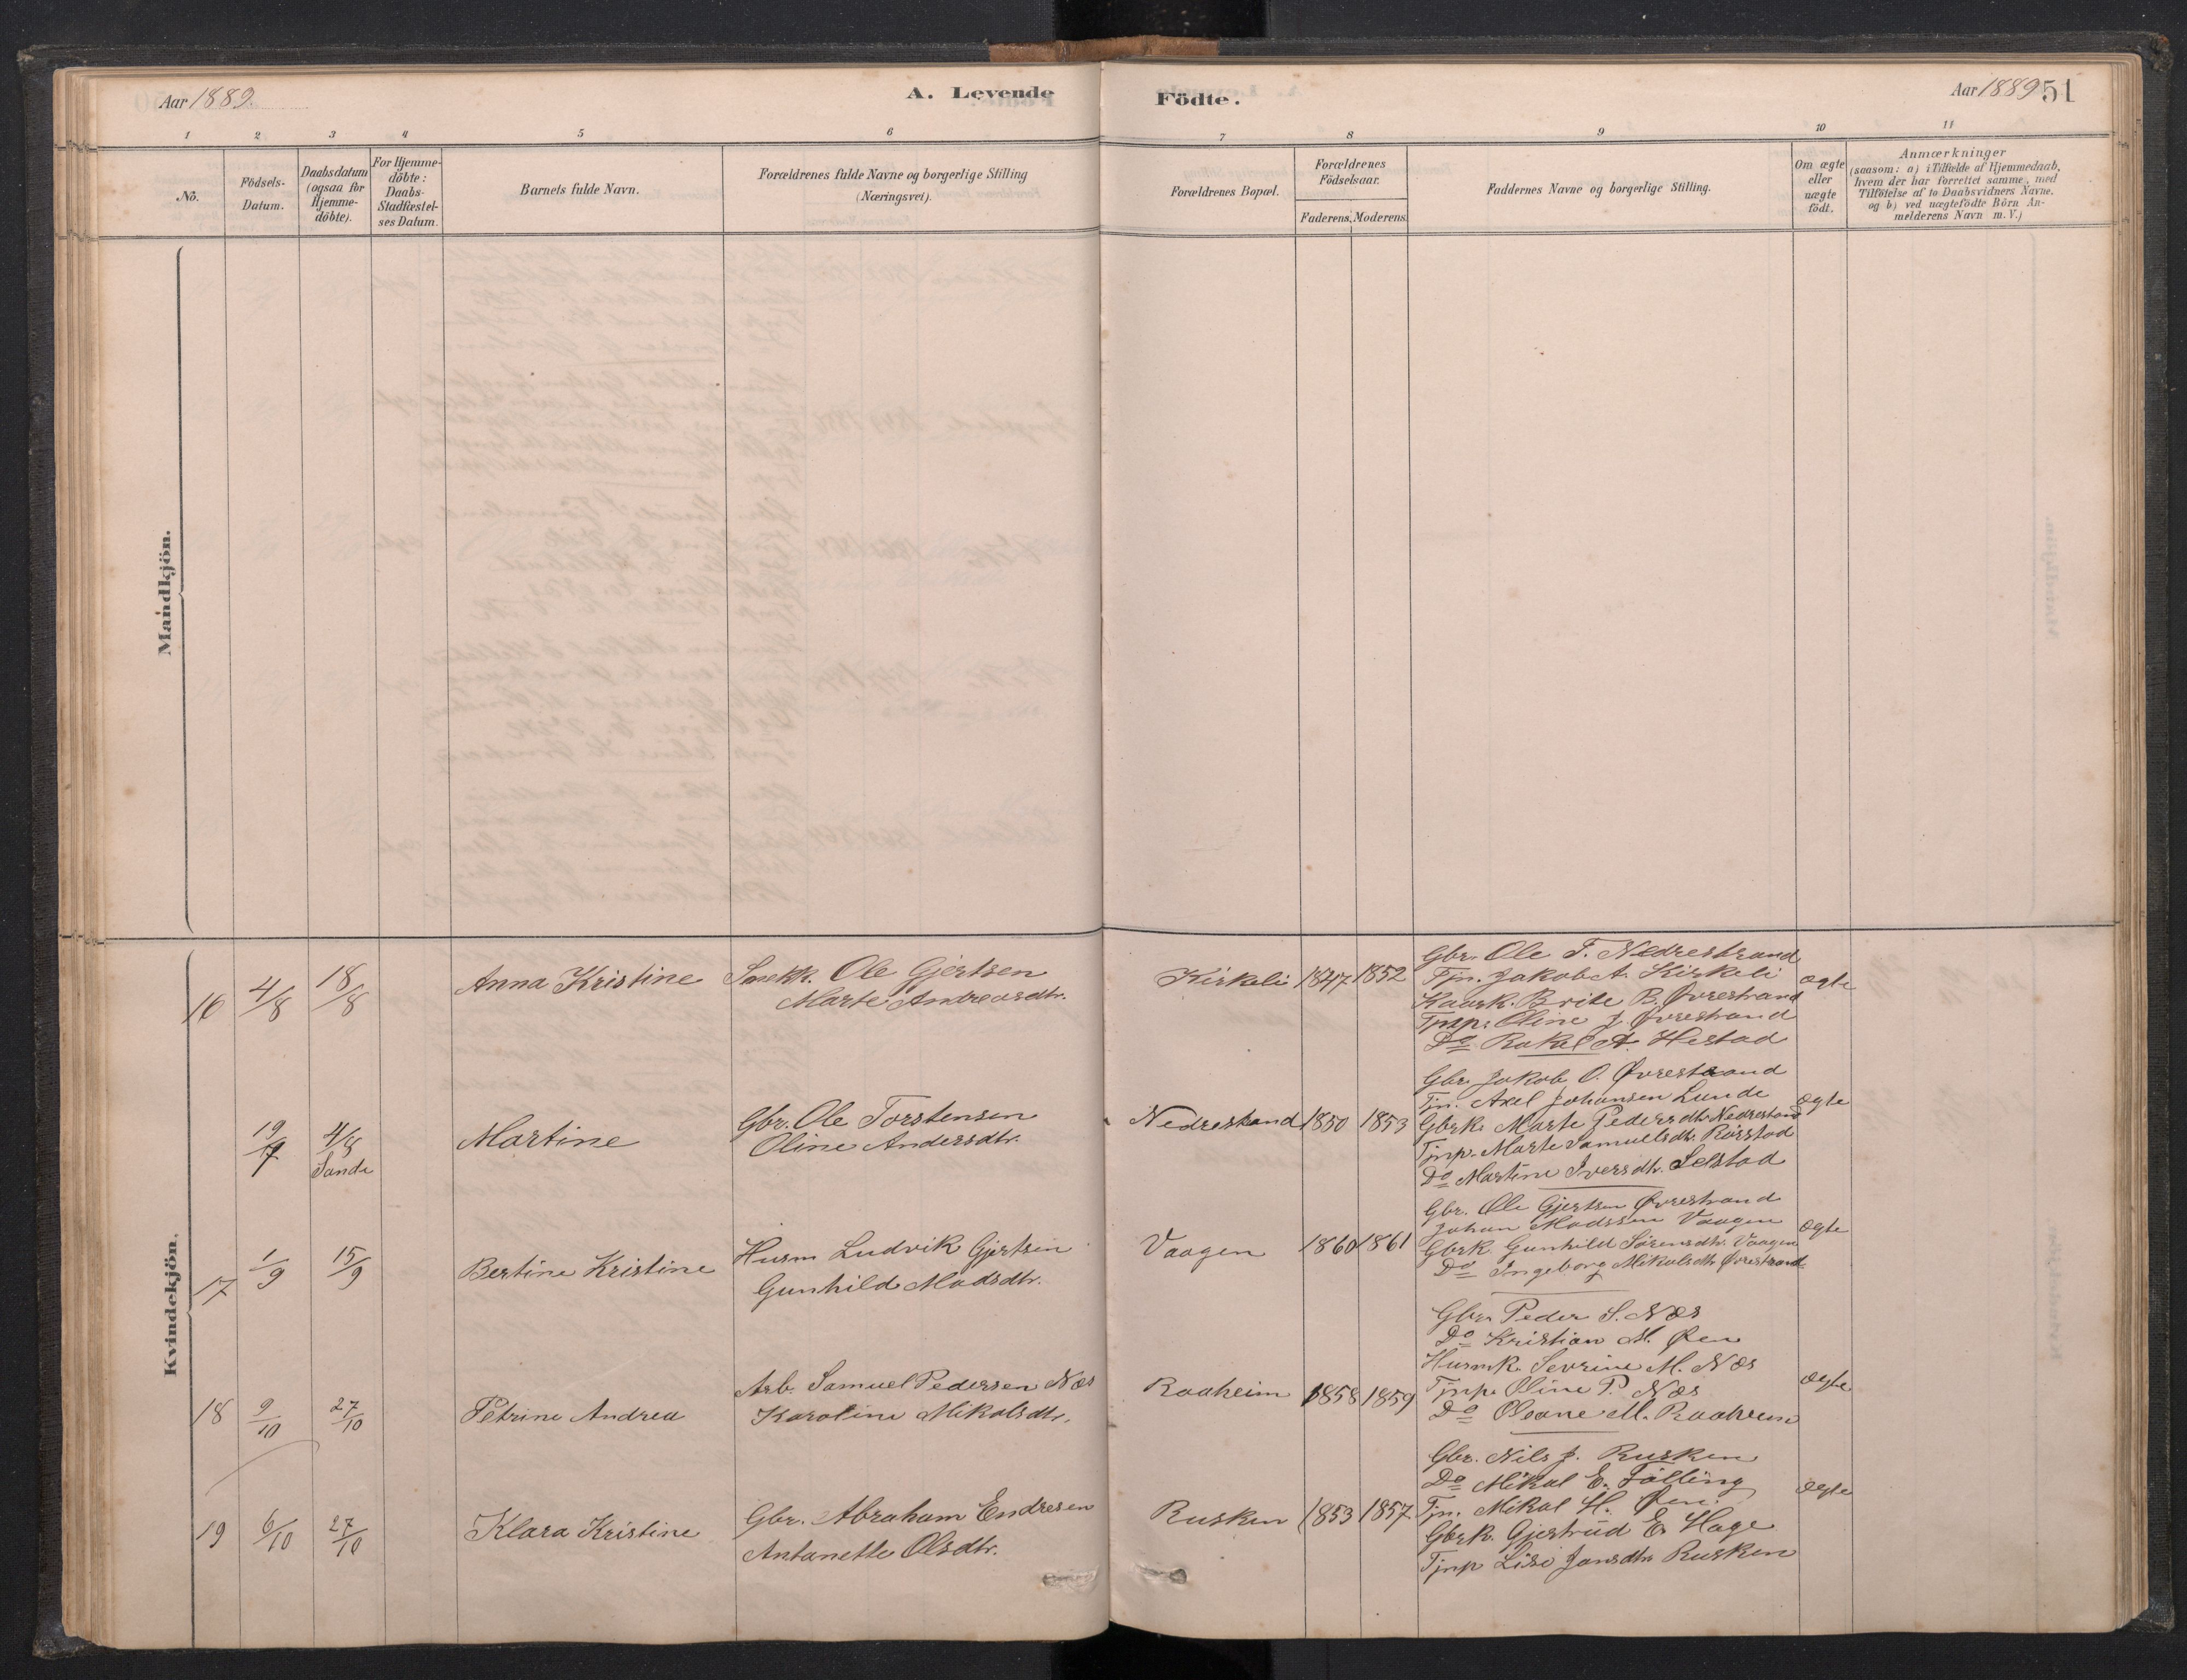 Aar 1889.
A. Levende
Födte.
Aar 1889
51
1 2 3 4 5 6 7 8 9 10 11
No.
Födsels-Datum.
Daabsdatum (ogsaa for Hjemme-döbte).
For Hjemme-döbte: Daabs-Stadfæstel-ses Datum.
Barnets fulde Navn.
Forældrenes fulde Navne og borgerlige Stilling (Næringsvei).
Forældrenes Bopæl.
Forældrenes Födselsaar.
Faderens. Moderens.
Faddernes Navne og borgerlige Stilling.
Om ægte eller uægte födt.
Anmærkninger
(saasom: a) i Tilfælde af Hjemmedaab,
hvem der har forrettet samme, med
Tilföielse af to Daabsvidners Navne.
og b) ved uægtefödte Börn An-
melderens Navn m.V.)
Mandkjön.
Kvindekjön.
16 4/8 18/8 Anna Kristine
Snekk. Ole Gjertsen
Marte Andreasdtr.
Kirkeli 1847 1852
Gbr. Ole T. Nedrestrand
Tjn. Jakob A. Kirkeli
Kaark. Brite B. Øvrestrand
Tjnp. Oline J. Øvrestrand
Do Rakel A. Hestad
ægte
19/7 4/8 Sande
Martine
Gbr. Ole Torstensen
Oline Andersdtr.
Nedrestrand 1850 1853
Gbr. Jakob O. Øvrestrand
Tjn. Axel Johansen Lunde
Gbrk. Marte Pedersdtr. Nedrestrand
Tjnp. Marte Samuelsdtr. Rørstad
Do Martine Iversdtr. Selstad
ægte
17 1/9 15/9 Bertine Kristine
Husm Ludvik Gjertsen
Gunhild Madsdtr.
Vaagen 1860 1861
Gbr. Ole Gjertsen Øvrestrand
Johan Madssen Vaagen
Gbrk. Gunhild Sørensdtr. Vaagen
Do Ingeborg Mikalsdtr Øvrestrand
ægte
18 9/10 27/10 Petrine Andrea
Arb. Samuel Pedersen Næs
Karoline Mikalsdtr.
Raaheim 1858 1859
Gbr. Peder S. Næs
Do Kristian M. Øen
Husmk. Sevrine M. Næs
Tjnp. Oline P. Næs
Do Oleane M. Raaheim
ægte
19 6/10 27/10 Klara Kristine
Gbr. Abraham Endresen
Antonette Olsdtr.
Rusken 1853 1857
Gbr. Nils J. Rusken
Do Mikal E. Tølling
Tjn. Mikal H. Øen
Gbrk. Gjertrud E. Hage
Tjnp Lisi Jansdtr Rusken
ægte